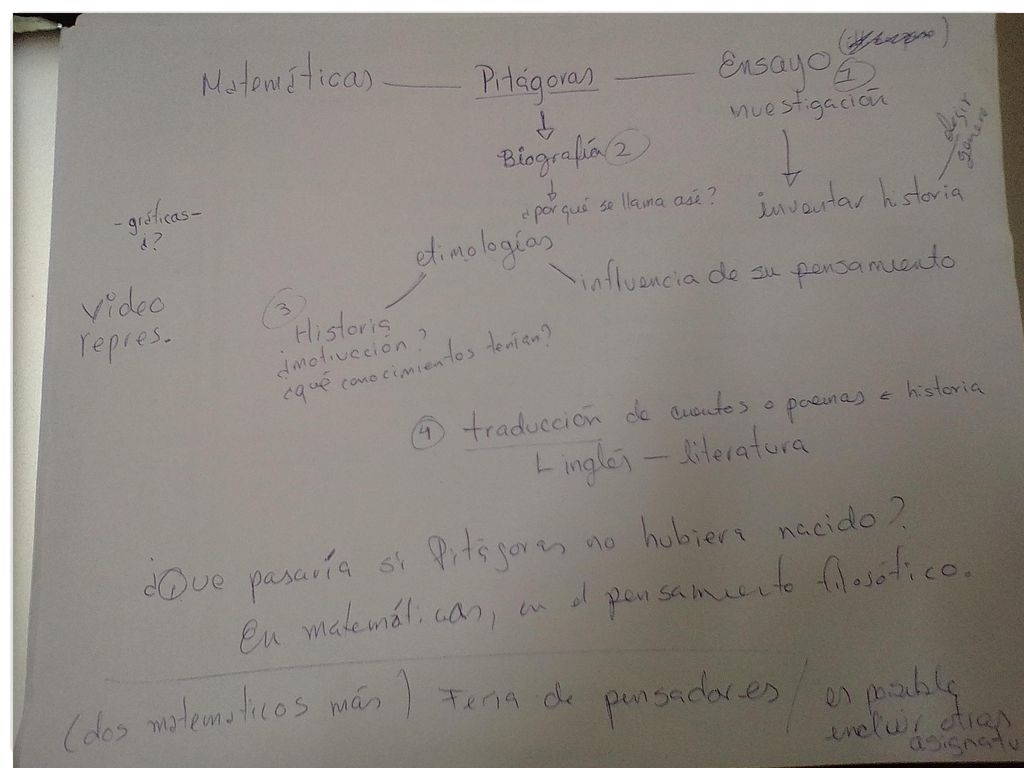 Matemáticas — Pitágoras — Ensayo
1
investigación
Biografía 2
¿por qué se llama así?
inventar historia
elegir
género
-gráficas-
¿?
etimologías
influencia de su pensamiento
Video
repres.
3
Historia
¿motivación?
¿qué conocimientos tenían?
4 traducción de cuentos o poemas e historia
inglés — literatura
¿Que pasaría si Pitágoras no hubiera nacido?
En matemáticas, en el pensamiento filosófico.
(dos matematicos más) Feria de pensadores / es posible
incluir otras
asignatu